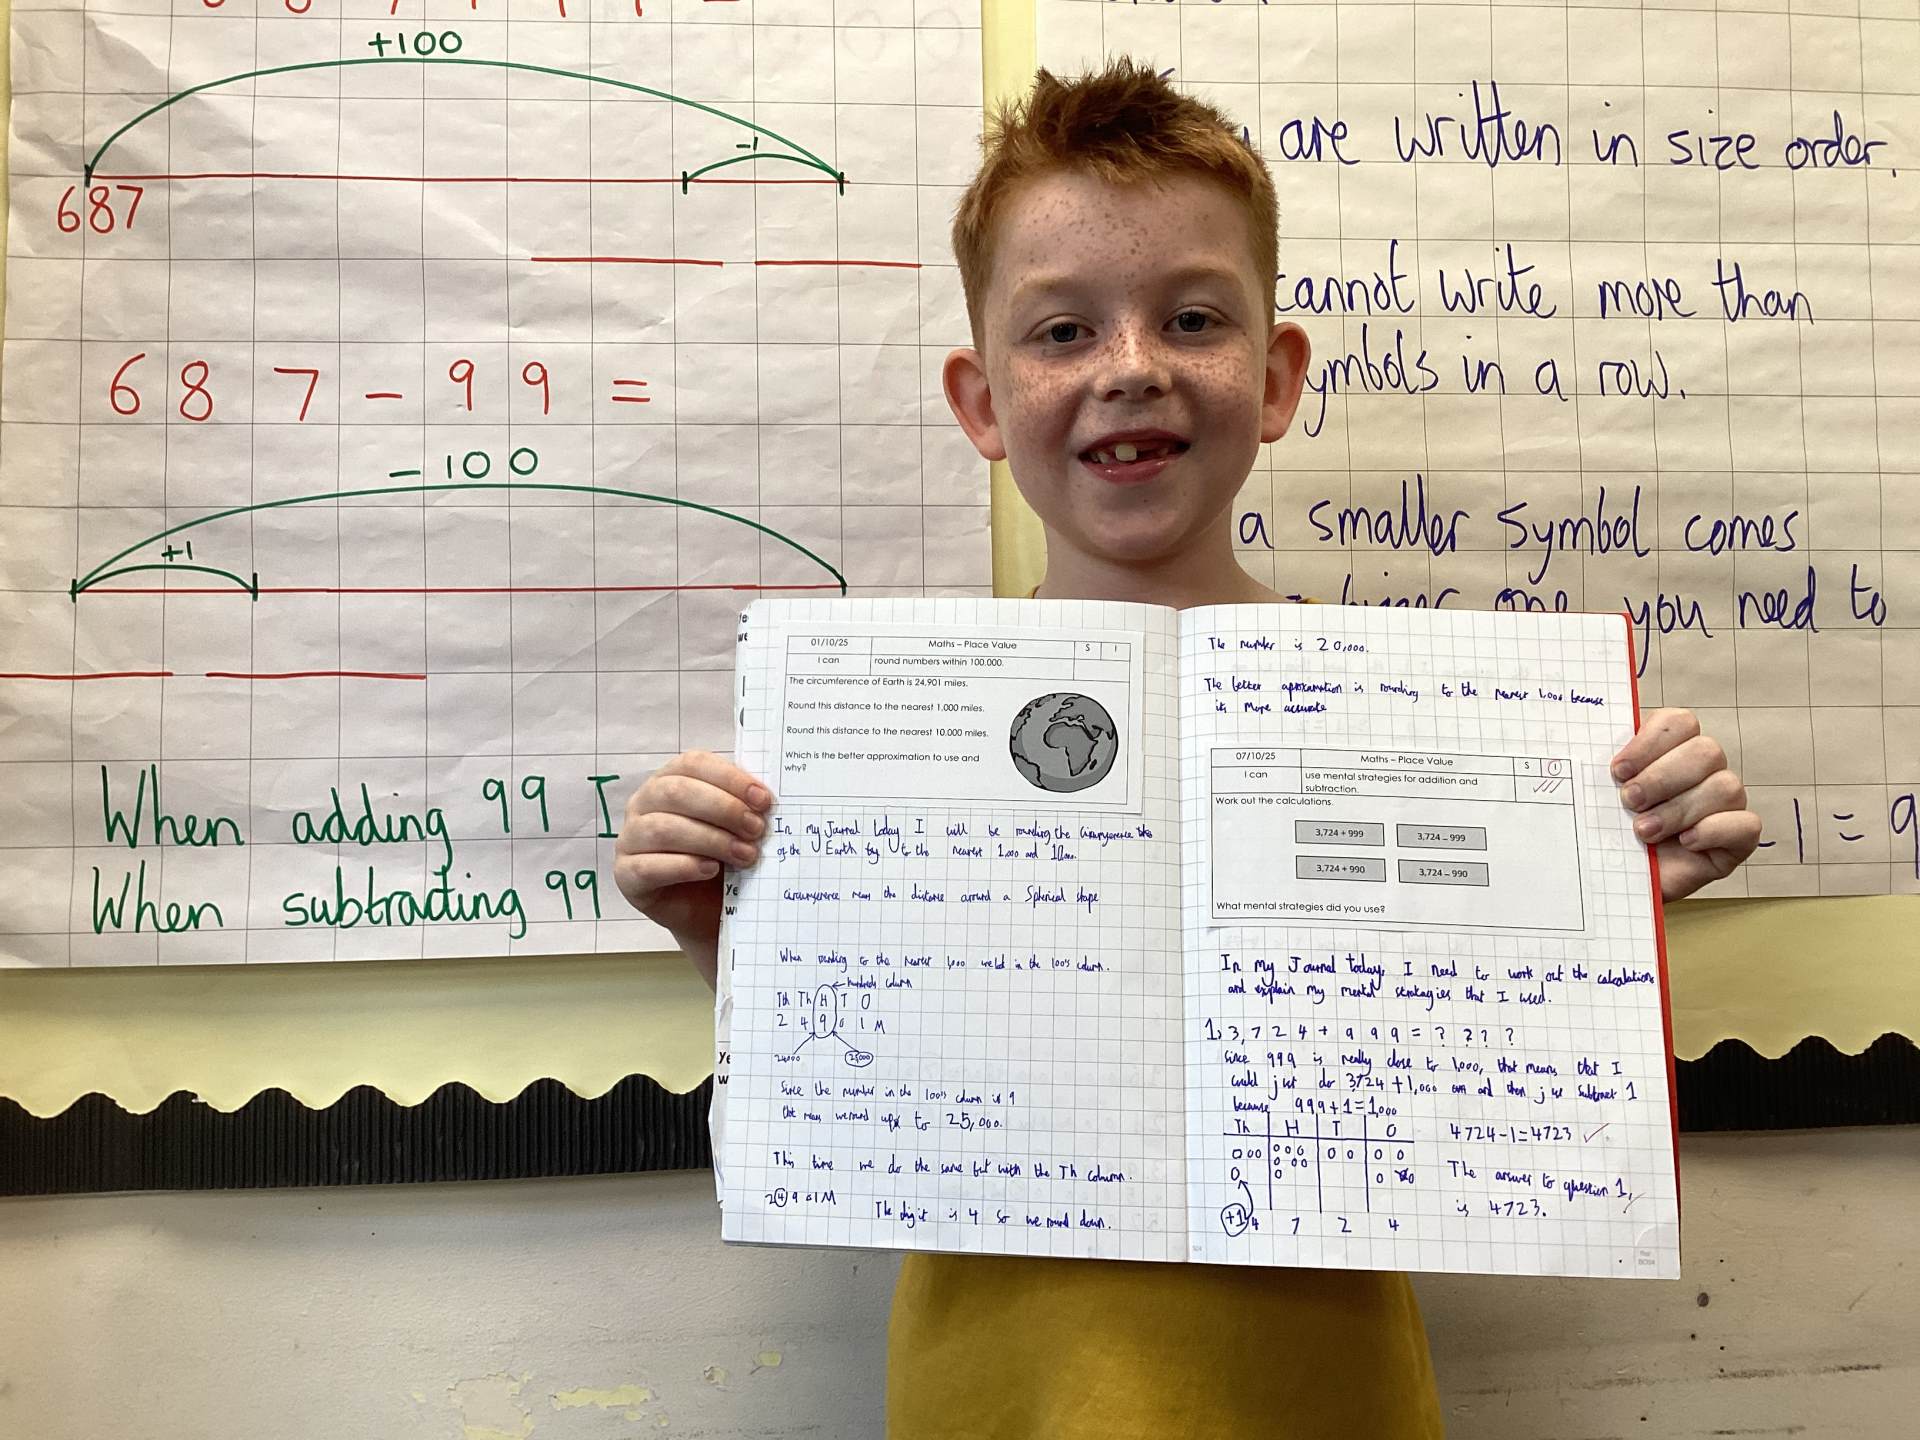 +100
-1
687
687-99=
-100
+1
When adding 99 I
When subtracting 99
are written in size order.
cannot write more than
ymbols in a row.
a smaller symbol comes
one you need to
-1=9
01/10/25 Maths – Place Value S I
I can round numbers within 100,000.
The circumference of Earth is 24,901 miles.
Round this distance to the nearest 1,000 miles.
Round this distance to the nearest 10,000 miles.
Which is the better approximation to use and
why?
In my Journal today I will be rounding the circumference
of the Earth by to the nearest 1,000 and
circumference mean the distance around a Spherical shape
When rounding to the nearest 1,000 we look in the 100's column.
hundreds column
Tth Th H T O
2 4 9 0 1 M
24000 25000
Since the number in the 100's column is 9
that mean we round up to 25,000.
This time we do the same but with the Th column.
24901M The digit is 4 so we round down.
The number is 20,000.
The better aproxamation is rounding to the nearest 1,000 because
its more accurate
07/10/25 Maths – Place Value S I
I can use mental strategies for addition and
subtraction.
Work out the calculations.
3,724 + 999 3,724 – 999
3,724 + 990 3,724 – 990
What mental strategies did you use?
In my Journal today, I need to work out the calculations
and explain my mental stratagies that I used.
1, 3,724+999=? ? ? ?
Since 999 is really close to 1,000, that means that I
could just do 3724+1,000 and then just subtract 1
because 999+1=1,000
Th H T O
4724-1=4723
The answer to question 1,
is 4723.
+1 4 7 2 4